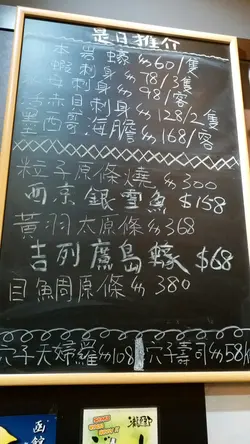 是日推介
本岩蠔 $60/隻
蝦刺身 $78/3隻
刺身 $98/客
活赤目刺身 $128/2隻
墨西哥海膽 $168/客
粒子原條燒 $300
西京銀雪魚 $158
黃羽太原條 $368
吉列鷹島蠔 $68
目魚周原條 $380
穴子天婦羅 $108 穴子壽司 $58/
函館